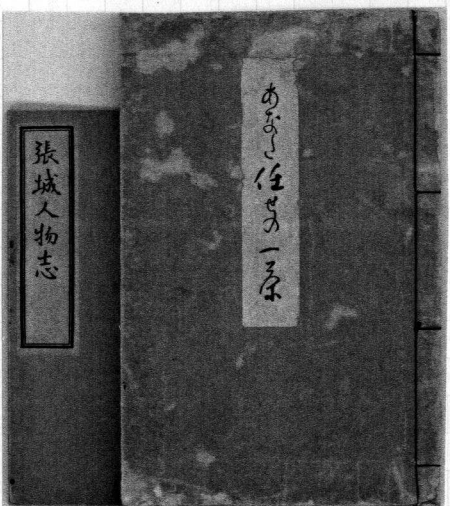 あなた任せの一茶
張城人物志